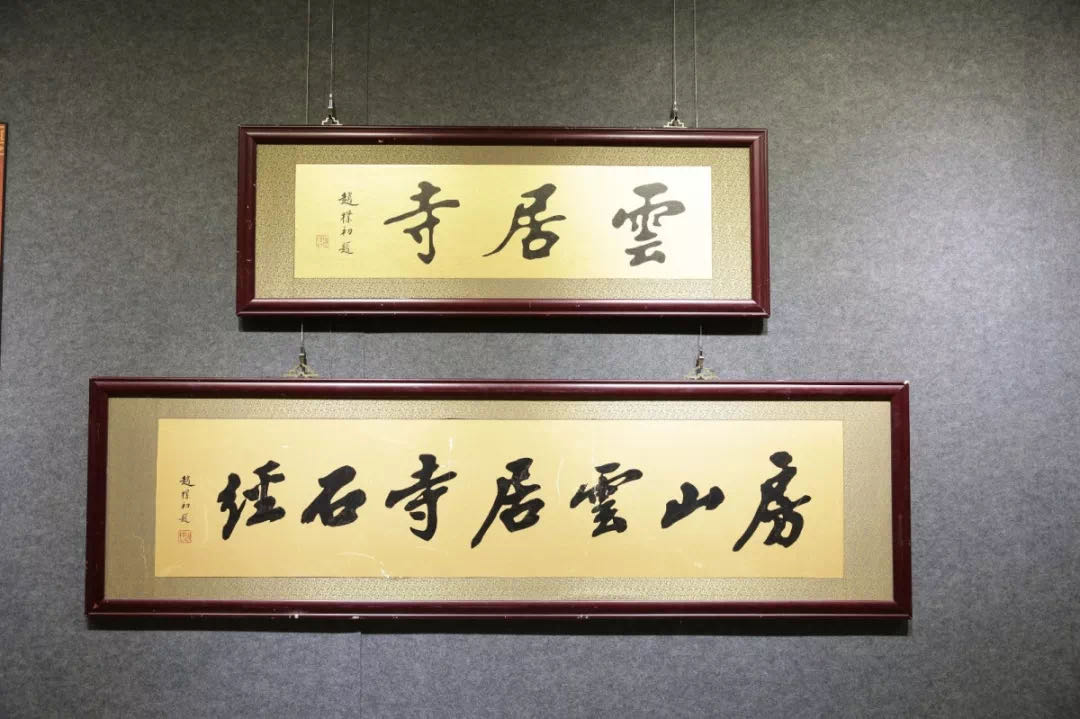 雲居寺
趙樸初題
房山雲居寺石經
趙樸初題